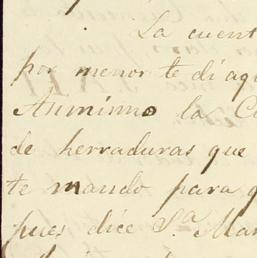 La cuent
por menor te di aqu
Anmimo la C
de herraduras que
te mando para q
pues dice S.ª Mar